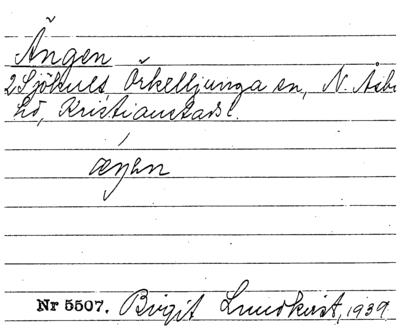 Ängen
2 Sjökuls, Örkelljunga sn, N. Åsbo
hd, Kristianstads l.
æŋen
Nr 5507. Birgit Lundkvist, 1939